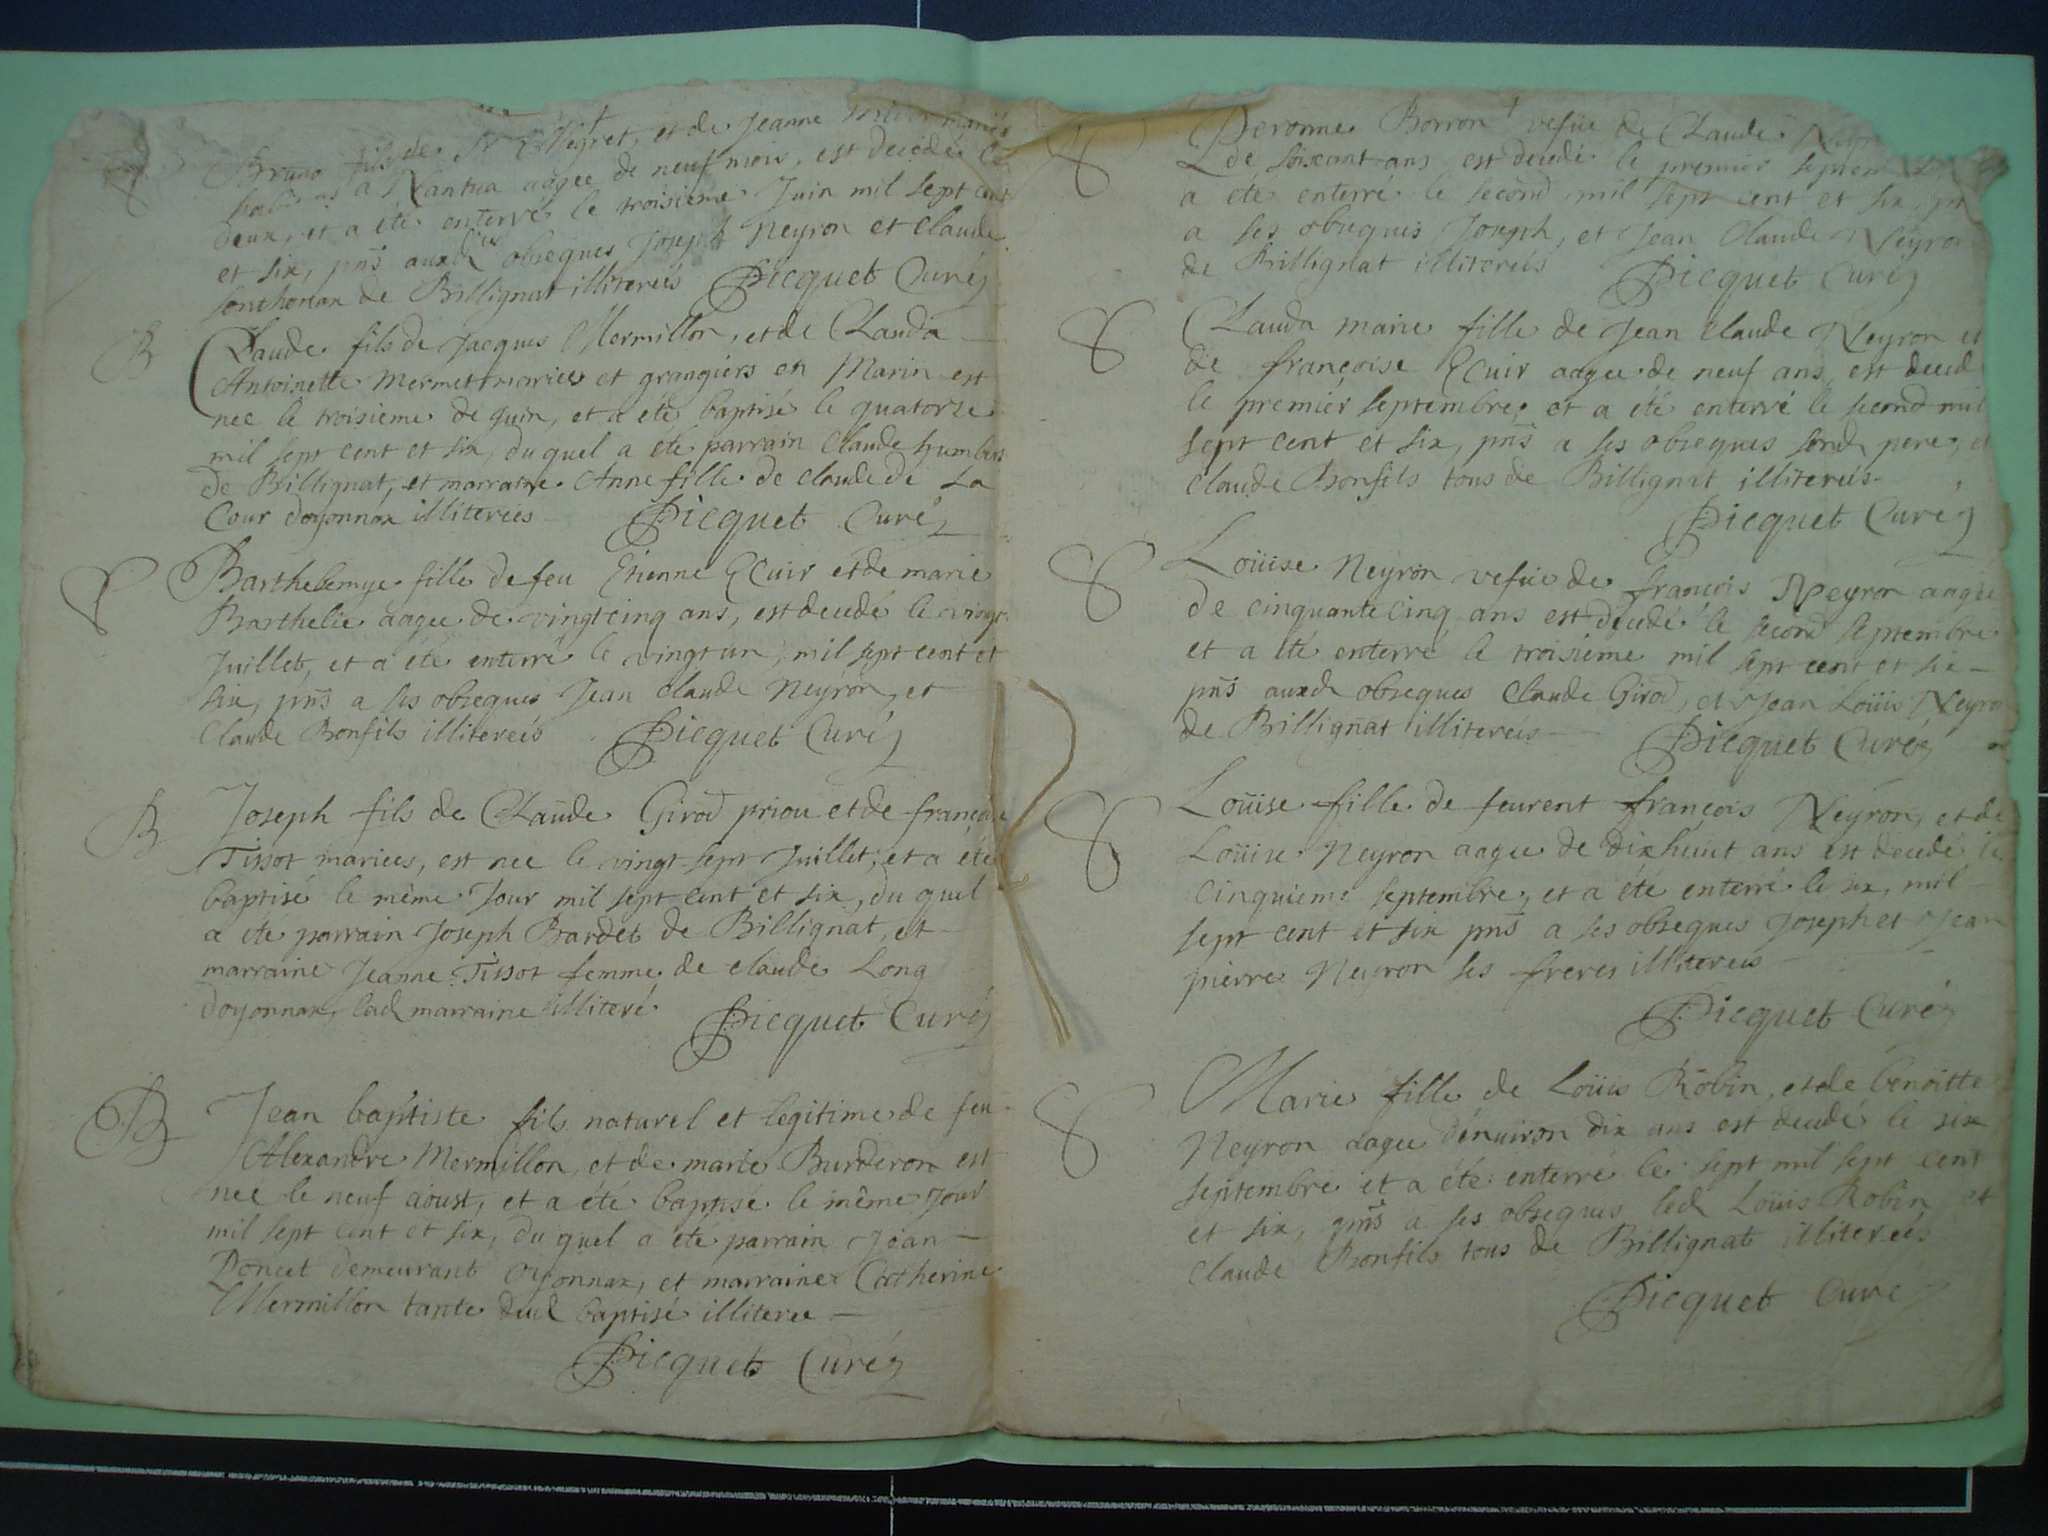 Bruno fils de Sr Meyret, et de Jeanne mariés
habitans a Nantua aagee de neuf mois, est decedé le
deux, et a été enterré le troisieme Juin mil sept cent
et six, pñs auxd obseques Joseph Neyron et Claude
Sonthonax de Billignat illitereés Picquet Curé
B
Claude fils de Jacques Mermillon, et de Clauda
Antoinette Mermet mariees et grangiers en Marin est
nee le troisieme de Juin, et a été baptisé le quatorze
mil sept cent et six, du quel a été parrain Claude humbert
de Billignat, et marraine Anne fille de claude de La
Cour d'oyonnax illiterees Picquet Curé
S
Barthelemye fille de feu Etienne Ecuir et de marie
Barthelie aagee de vingt cinq ans, est decedé le vingt
Juillet, et a été enterré le vingt un, mil sept cent et
six, pñs a ses obseques Jean claude Neyron, et
Claude Bonfils illitereés Picquet Curé
B
Joseph fils de Claude Girod priou et de françoise
Tissot mariees, est nee le vingt sept Juillet, et a été
baptisé le même Jour mil sept cent et six, du quel
a été parrain Joseph Bardet de Billignat, et
marraine Jeanne Tissot femme de claude Long
d'oyonnax, lad marraine illiteré Picquet Curé
B
Jean baptiste fils naturel et legitime de feu
Alexandre Mermillon, et de marie Burderon est
nee le neuf aoust, et a été baptisé le même Jour
mil sept cent et six, du quel a été parrain Jean
Poncet demeurant oyonnax, et marraine Catherine
Mermillon tante dud baptisé illiteree
Picquet Curé
S
Peronne Borron vefüe de Claude
de soixant ans est decedé le premier septem
a été enterré le second mil sept cent et six,
a ses obseques Joseph, et Jean Claude Neyron
de Billignat illitereés Picquet Curé
S
Clauda marie fille de Jean Claude Neyron et
de françoise Ecuir aagee de neuf ans, est deced
le premier septembre, et a été enterré le second mil
sept cent et six, pñs a ses obseques sond pere, et
claude Bonfils tous de Billignat illitereés
Picquet Curé
S
Loüise Neyron vefüe de françois Neyron aagee
de cinquante cinq ans est decedé le second septembre
et a été enterré le troisieme mil sept cent et six
pñs auxd obseques Claude Girod, et Jean Loüis Neyron
de Billignat illitereés Picquet Curé
S
Loüise fille de feurent françois Neyron, et de
Loüise Neyron aagee de dix huict ans est decedé le
cinquieme septembre, et a été enterré le six, mil
sept cent et six pñs a ses obseques Joseph et Jean
pierre Neyron ses freres illitereés
Picquet Curé
S
Marie fille de Loüis Robin, et de benoitte
Neyron aagee d'enuiron dix ans est decedé le six
septembre et a été enterré le sept mil sept cent
et six, pñs a ses obseques led Loüis Robin et
claude Bonfils tous de Billignat illitereés
Picquet Curé